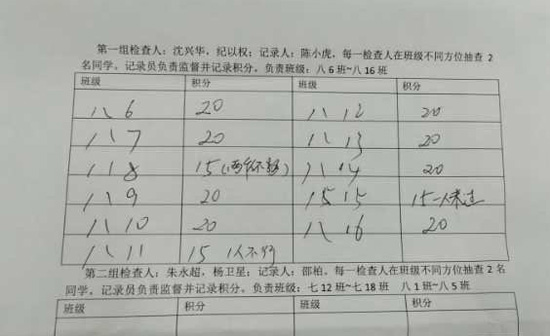 第一组检查人：沈兴华，纪以权；记录人：陈小虎，每一检查人在班级不同方位抽查 2
名同学。记录员负责监督并记录积分。负责班级：八 6 班~八 16 班
班级 积分 班级 积分
八 6 20 八 12 20
八 7 20 八 13 20
八 8 15 八 14 20
八 9 20 15 15 一人未过
八 10 20 八 16 20
八 11 15 1人不行
第二组检查人：朱永超，杨卫星；记录人：邵柏，每一检查人在班级不同方位抽查 2 名
同学。记录员负责监督并记录积分。负责班级：七 12 班~七 18 班 八 1 班~八 5 班
班级 积分 班级 积分